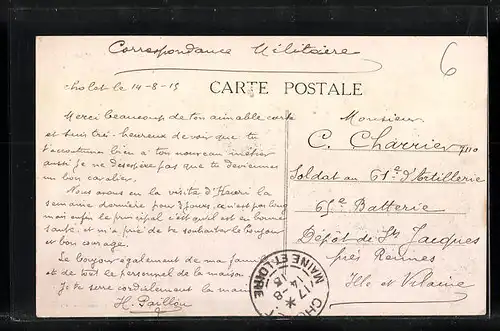 Correspondance Militaire
6
Cholet le 14-8-15
CARTE POSTALE
Merci beaucoup de ton aimable carte
et suis très heureux de voir que tu
t'accoutumes bien à ton nouveau métier
aussi je ne désespère pas que tu deviennes
un bon cavalier.
Nous avons eu la visite d'Henri la
semaine dernière pour 3 jours, ce n'est pas long
mais enfin le principal c'est qu'il est en bonne
santé et m'a prié de te souhaiter le bonjour
et bon courage.
Le bonjour également de ma famille
et de tout le personnel de la maison
Je te serre cordialement la main
H. Paillou
Monsieur
C. Charrier
Soldat au 61e d'Artillerie
65e Batterie
Dépôt de St Jacques
près Rennes
Ille et Vilaine
CHOLET
17 *
14 -8
15
MAINE-ET-LOIRE